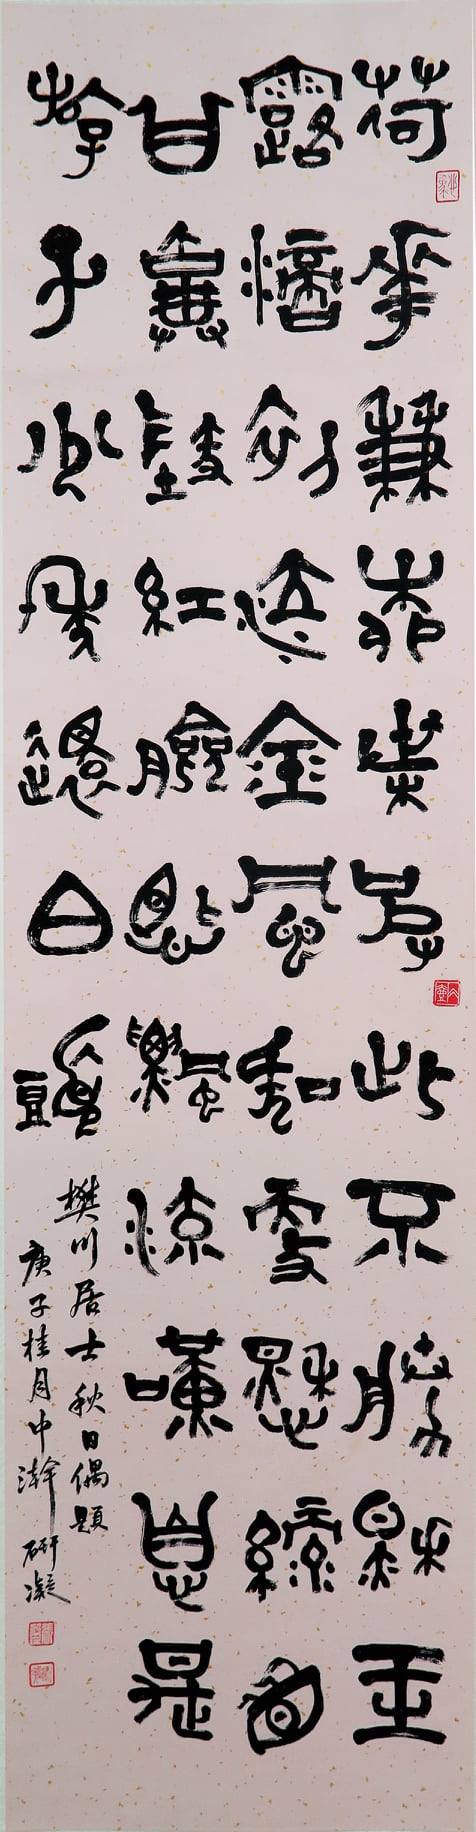 荷花兼柳葉彼此不勝秋玉
露滴初泣金風吹更愁綠眉
甘棄墜紅臉恨飄流嘆息是
游子少年還白頭
樊川居士秋日偶題
庚子桂月中澣研凝